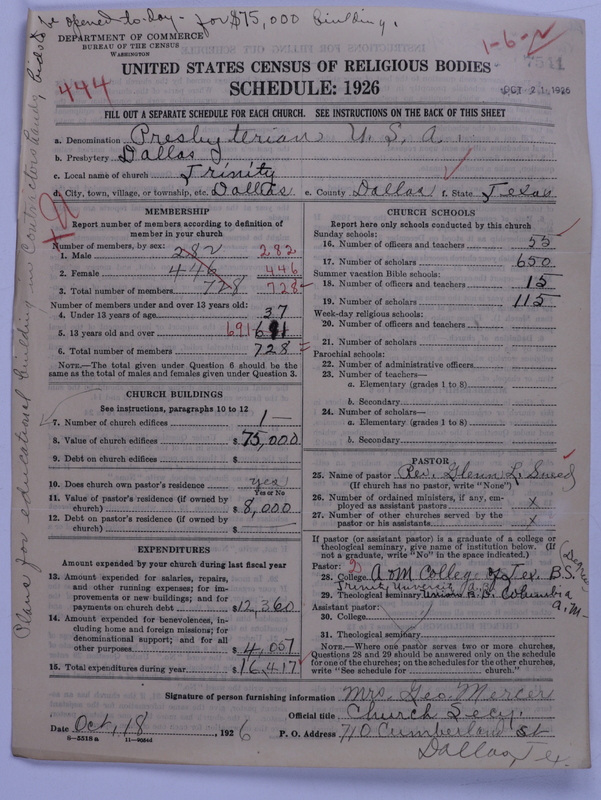 be opened to-day - for $75,000 building.
Plans for educational building in Contractors hands, bids to
DEPARTMENT OF COMMERCE
BUREAU OF THE CENSUS
WASHINGTON
444
1-6-
7511
OCT 21 1926
UNITED STATES CENSUS OF RELIGIOUS BODIES
SCHEDULE: 1926
FILL OUT A SEPARATE SCHEDULE FOR EACH CHURCH. SEE INSTRUCTIONS ON THE BACK OF THIS SHEET
a. Denomination Presbyterian U. S. A.
b. Presbytery Dallas
c. Local name of church Trinity
d. City, town, village, or township, etc. Dallas e. County Dallas f. State Texas
MEMBERSHIP
Report number of members according to definition of
member in your church
Number of members, by sex:
1. Male 282 282
2. Female 446 446
3. Total number of members 728 728
Number of members under and over 13 years old:
4. Under 13 years of age 37
5. 13 years old and over 691 691
6. Total number of members 728
NOTE.—The total given under Question 6 should be the
same as the total of males and females given under Question 3.
CHURCH BUILDINGS
See instructions, paragraphs 10 to 12
7. Number of church edifices 1
8. Value of church edifices $ 75,000
9. Debt on church edifices $
10. Does church own pastor's residence yes
Yes or No
11. Value of pastor's residence (if owned by
church) $ 8,000
12. Debt on pastor's residence (if owned by
church) $
EXPENDITURES
Amount expended by your church during last fiscal year
13. Amount expended for salaries, repairs,
and other running expenses; for im-
provements or new buildings; and for
payments on church debt $12,360
14. Amount expended for benevolences, in-
cluding home and foreign missions; for
denominational support; and for all
other purposes $ 4,057
15. Total expenditures during year $ 16,417
CHURCH SCHOOLS
Report here only schools conducted by this church
Sunday schools:
16. Number of officers and teachers 55
17. Number of scholars 650
Summer vacation Bible schools:
18. Number of officers and teachers 15
19. Number of scholars 115
Week-day religious schools:
20. Number of officers and teachers
21. Number of scholars
Parochial schools:
22. Number of administrative officers
23. Number of teachers—
a. Elementary (grades 1 to 8)
b. Secondary
24. Number of scholars—
a. Elementary (grades 1 to 8)
b. Secondary
PASTOR
25. Name of pastor Rev. Glenn L. Sneed
(If church has no pastor, write "None")
26. Number of ordained ministers, if any, em-
ployed as assistant pastors x
27. Number of other churches served by the
pastor or his assistants x
If pastor (or assistant pastor) is a graduate of a college or
theological seminary, give name of institution below. (If
not a graduate, write "No" in the space indicated.)
(Degree)
Pastor: 2
28. College A & M College of Tex. B.S.
Trinity University
29. Theological seminary Union B.D. Columbia
a.m.
Assistant pastor:
30. College
31. Theological seminary
NOTE.—Where one pastor serves two or more churches,
Questions 28 and 29 should be answered only on the schedule
for one of the churches; on the schedules for the other churches,
write "See schedule for church."
Signature of person furnishing information Mrs. Geo. Mercer
Official title Church Secy.
Date Oct. 18, 1926 P. O. Address 710 Cumberland St
8-5518a Dallas, Tex.